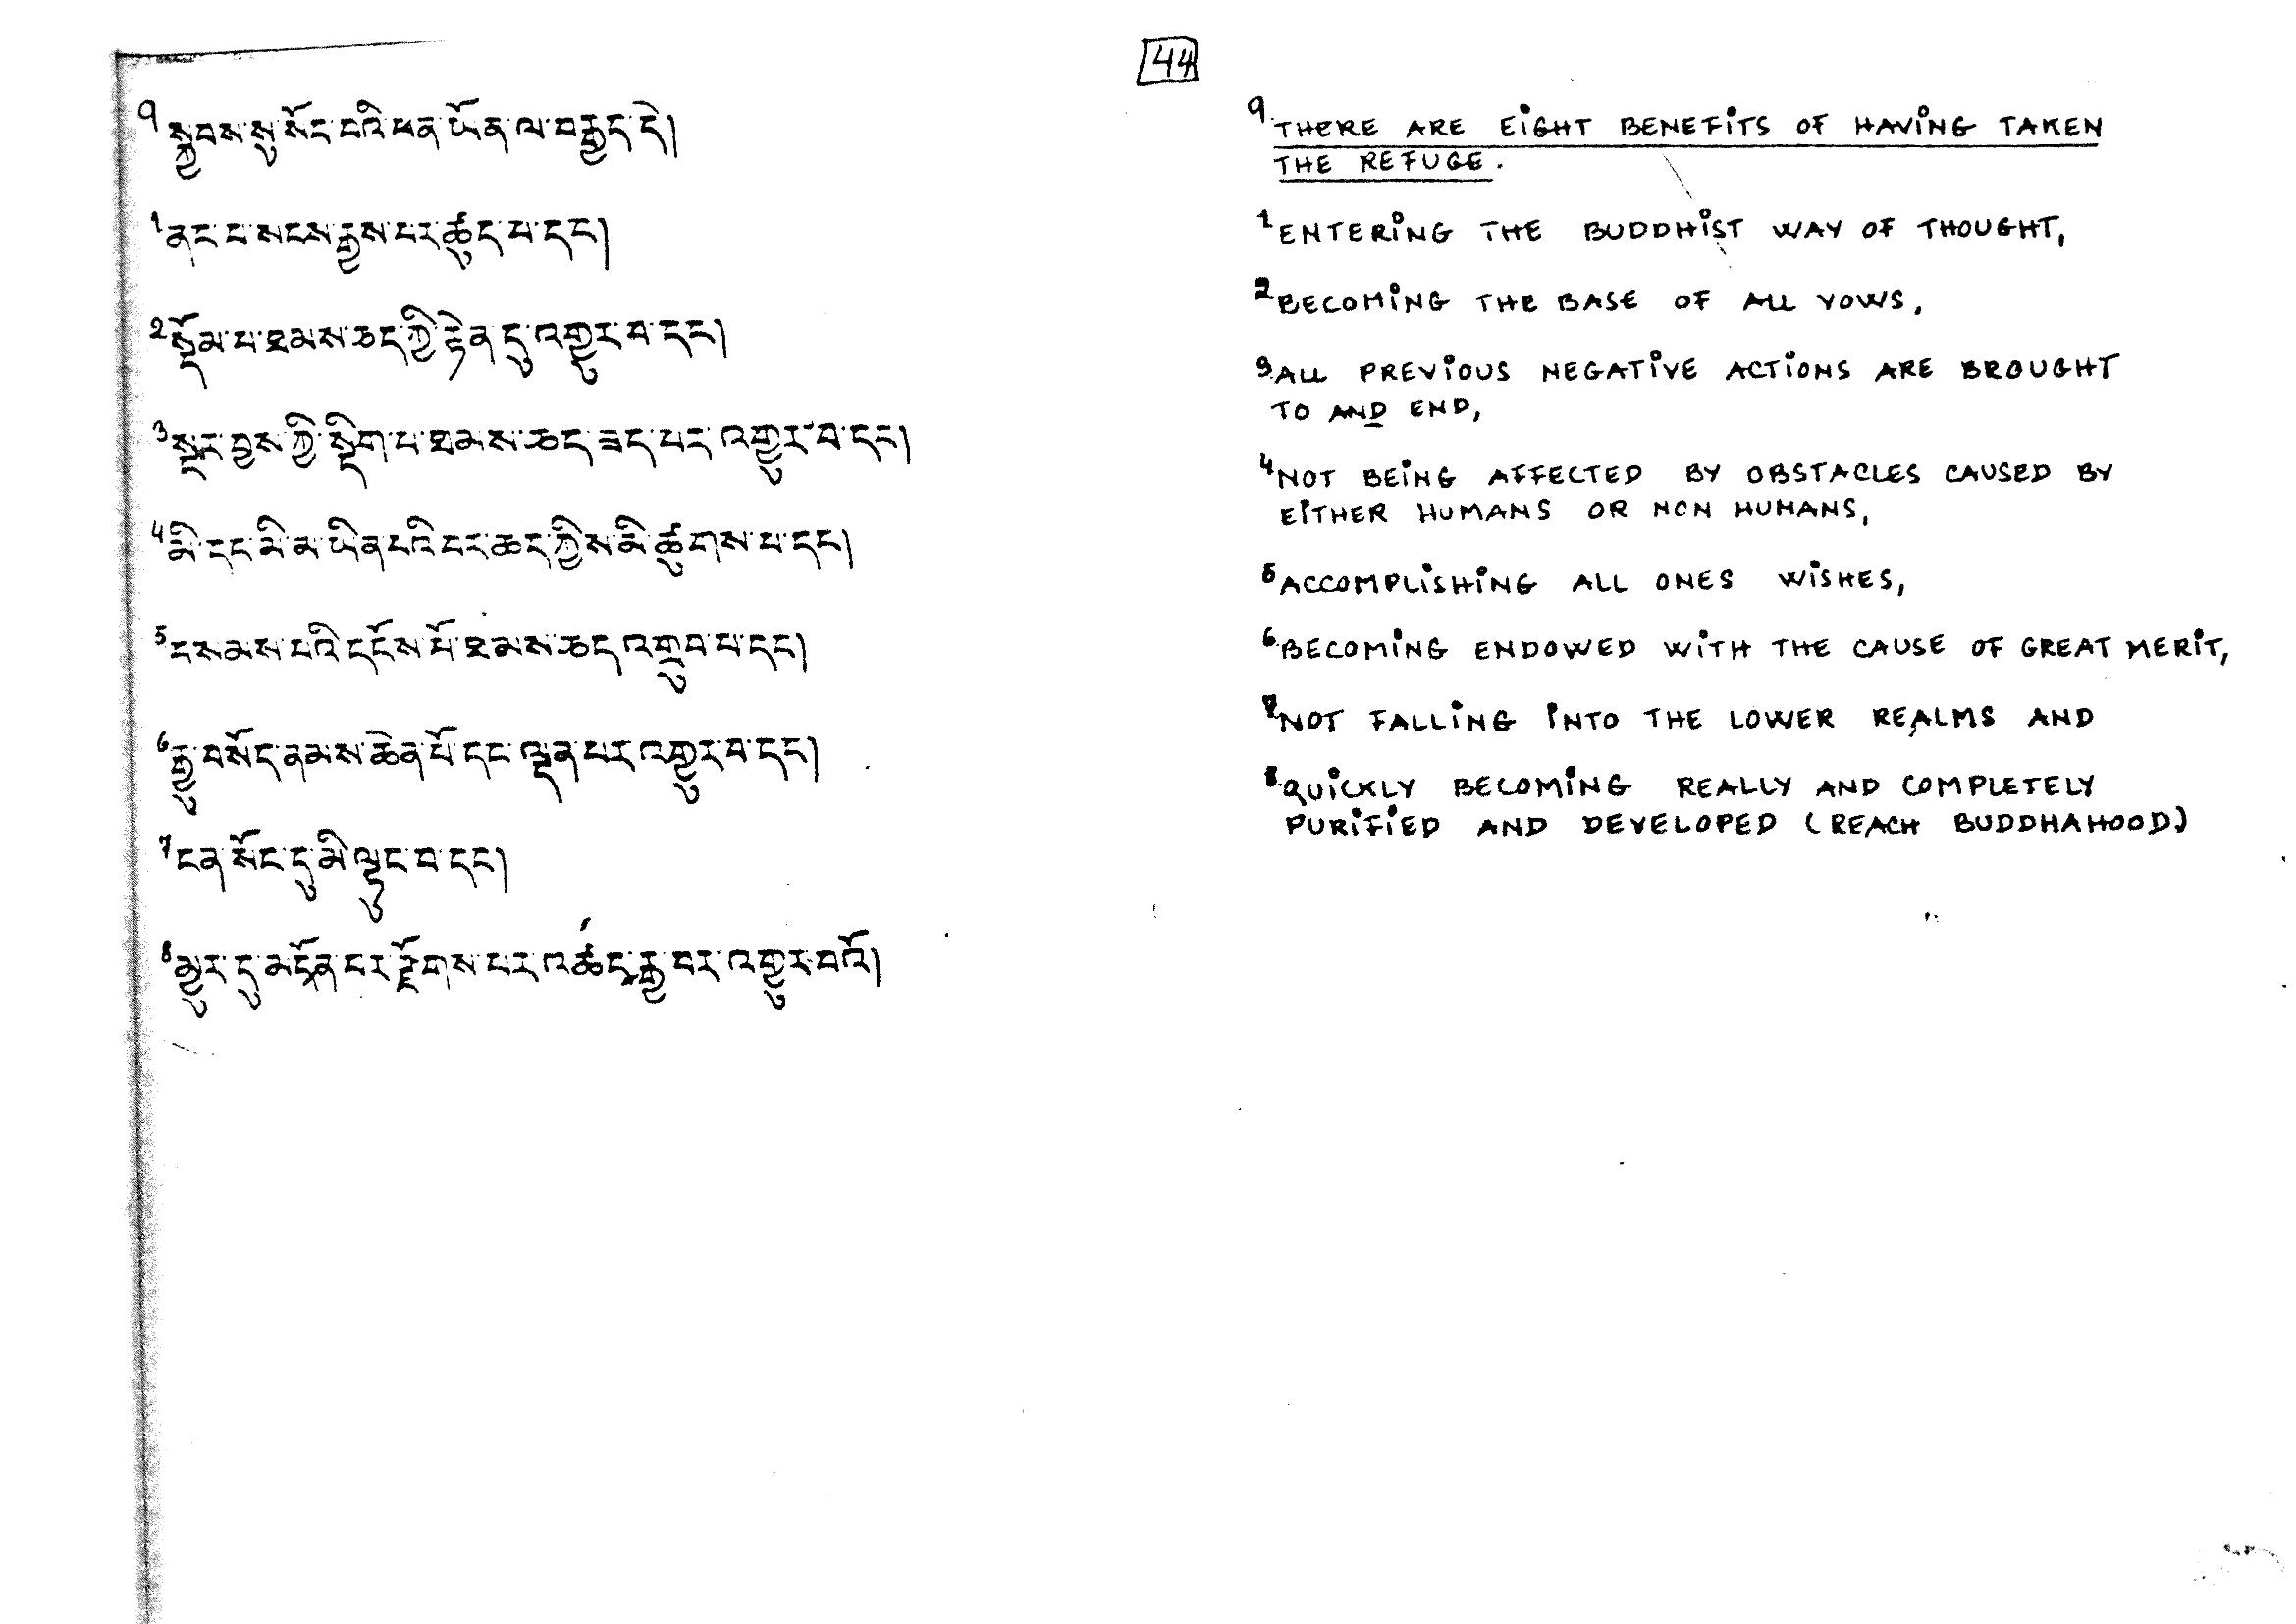 44
༡ སྐྱབས་སུ་སོང་བའི་ཕན་ཡོན་ལ་བརྒྱད་དེ།
1 ནང་པ་སངས་རྒྱས་པར་ཚུད་པ་དང།
2 སྡོམ་པ་ཐམས་ཅད་ཀྱི་རྟེན་དུ་འགྱུར་བ་དང།
3 སྔར་བྱས་ཀྱི་སྡིག་པ་ཐམས་ཅད་ཟད་པར་འགྱུར་བ་དང།
4 མི་དང་མི་མ་ཡིན་པའི་བར་ཆད་ཀྱིས་མི་ཚུགས་པ་དང།
5 བསམས་པའི་དངོས་པོ་ཐམས་ཅད་འགྲུབ་པ་དང།
6 རྒྱུ་བསོད་ནམས་ཆེན་པོ་དང་ལྡན་པར་འགྱུར་བ་དང།
7 ངན་སོང་དུ་མི་ལྟུང་བ་དང།
8 མྱུར་དུ་མངོན་པར་རྫོགས་པར་འཚང་རྒྱ་བར་འགྱུར་བའོ།
༡. THERE ARE EIGHT BENEFITS OF HAVING TAKEN
THE REFUGE.
1 ENTERING THE BUDDHIST WAY OF THOUGHT,
2 BECOMING THE BASE OF ALL VOWS,
3 ALL PREVIOUS NEGATIVE ACTIONS ARE BROUGHT
TO AND END,
4 NOT BEING AFFECTED BY OBSTACLES CAUSED BY
EITHER HUMANS OR NON HUMANS,
5 ACCOMPLISHING ALL ONES WISHES,
6 BECOMING ENDOWED WITH THE CAUSE OF GREAT MERIT,
7 NOT FALLING INTO THE LOWER REALMS AND
8 QUICKLY BECOMING REALLY AND COMPLETELY
PURIFIED AND DEVELOPED (REACH BUDDHAHOOD)